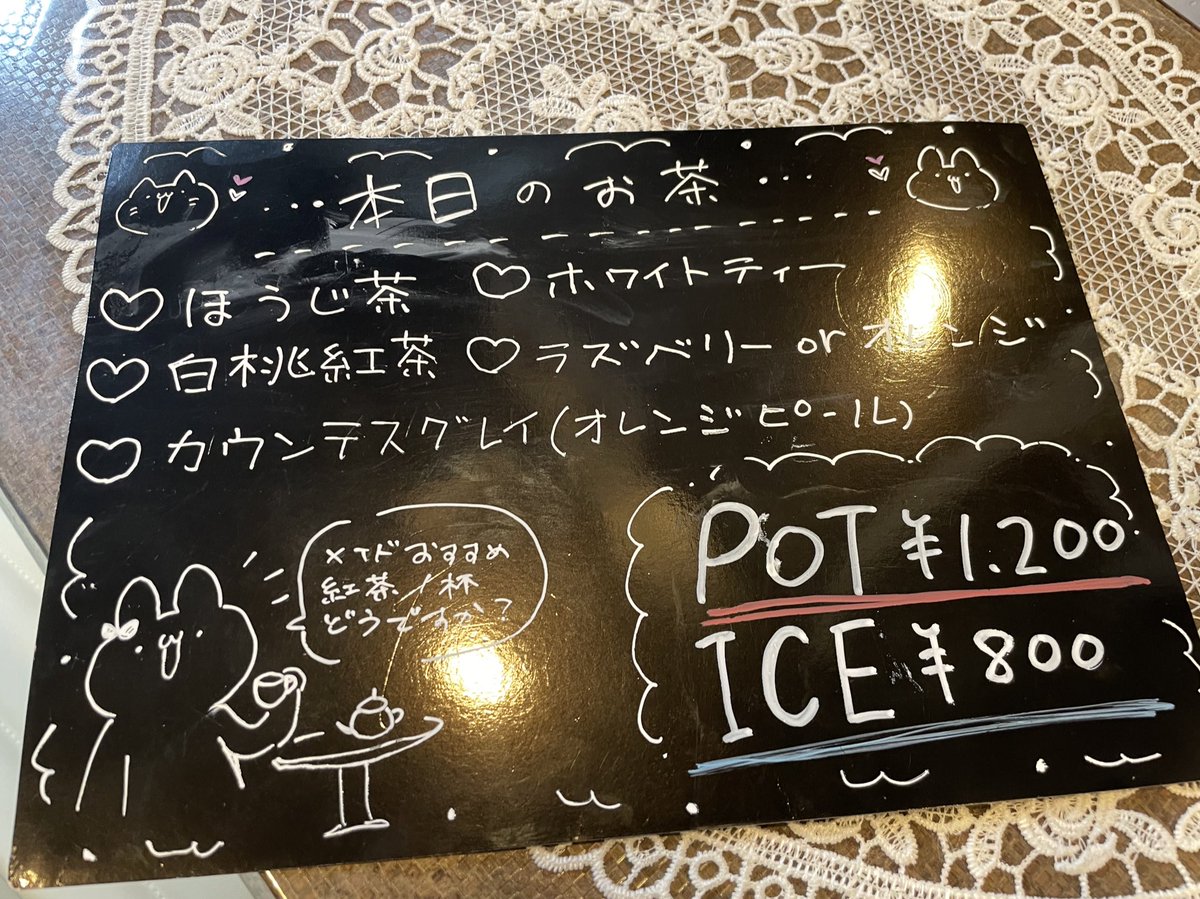 ...本日のお茶...
♡ほうじ茶 ♡ホワイトティー
♡白桃紅茶 ♡ラズベリー or オレンジ
♡カウンテスグレイ(オレンジピール)
メイドおすすめ
紅茶1杯
どうですか?
POT ¥1.200
ICE ¥800